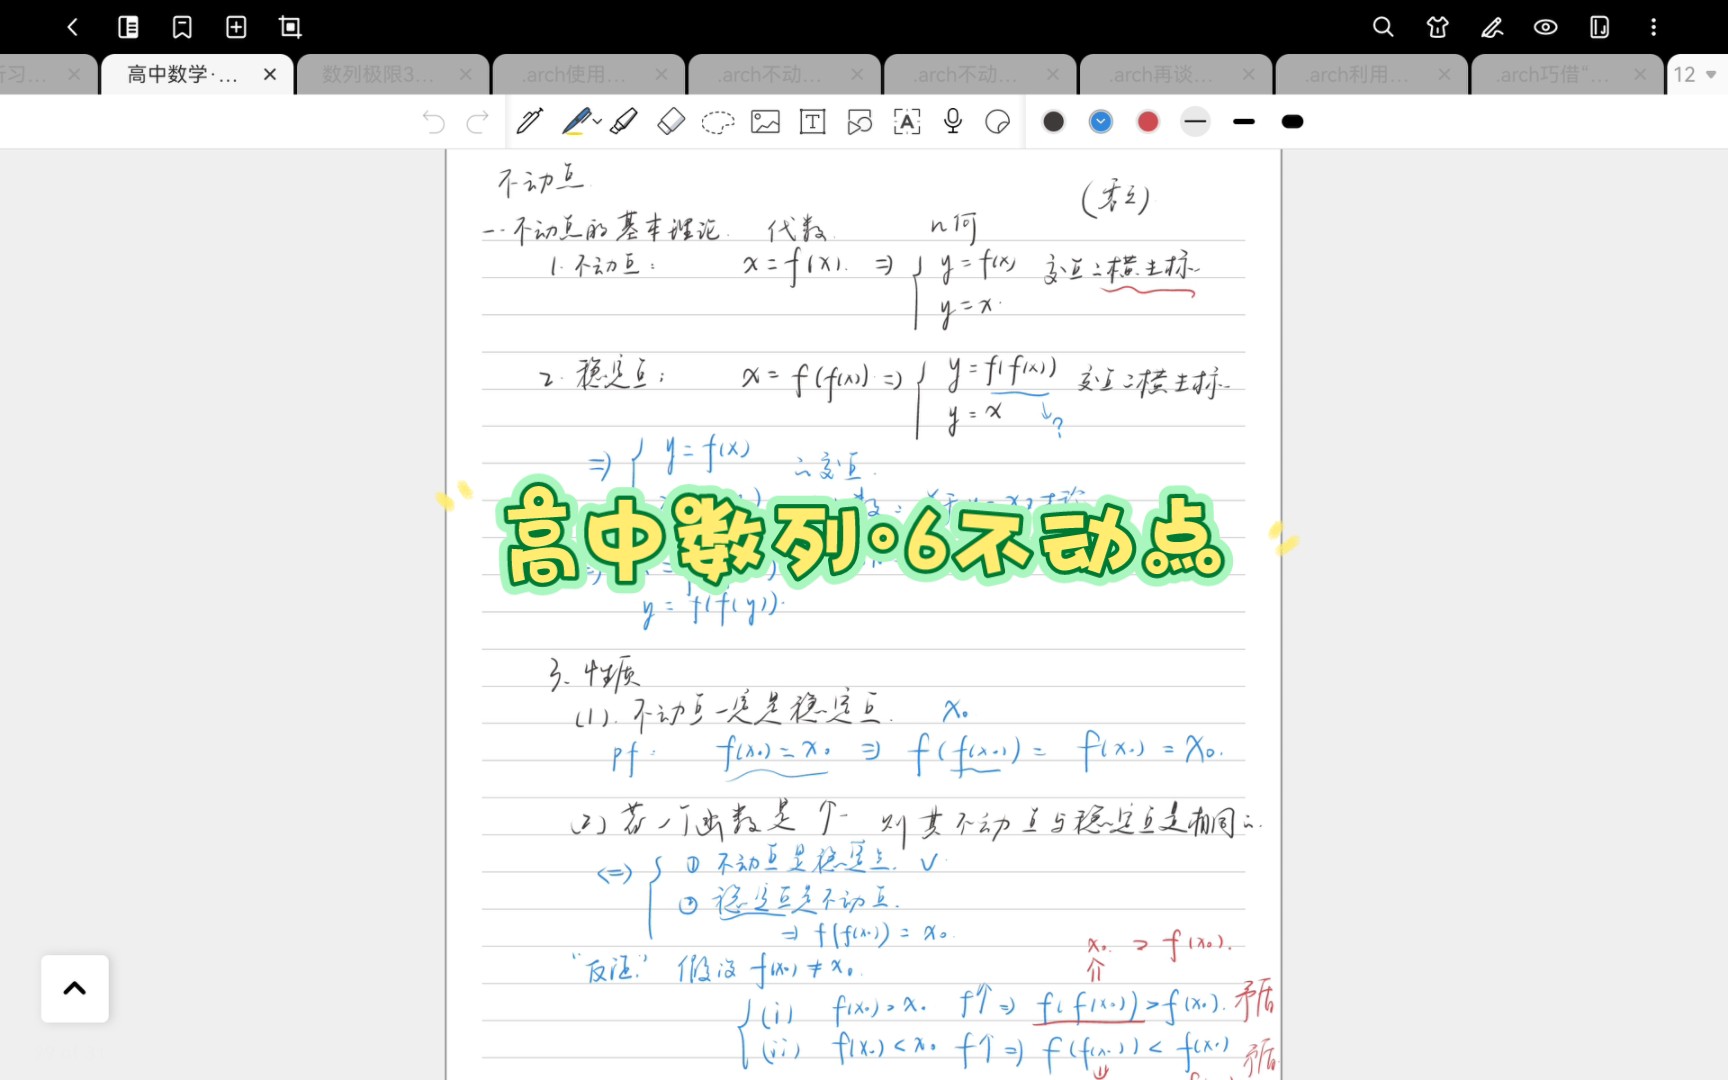 析习...
高中数学·...
数列极限3...
.arch使用...
.arch不动...
.arch不动...
.arch再谈...
.arch利用...
.arch巧借“...
12
不动点
一.不动点的基本理论 代数 几何
1. 不动点: x=f(x). ⇒ { y=f(x) 交点之横坐标
y=x.
2. 稳定点: x=f(f(x)) ⇒ { y=f(f(x)) 交点之横坐标
y=x ↓?
⇒ { y=f(x) 之交点.
高中数列·6不动点
y=f(f(y)).
3. 性质
(1). 不动点一定是稳定点. x₀
pf: f(x₀)=x₀ ⇒ f(f(x₀))= f(x₀)=x₀.
(2) 若一个函数是个↑ 则其不动点与稳定点是相同的.
<=> { ① 不动点是稳定点. ✓
② 稳定点是不动点.
⇒ f(f(x₀))=x₀.
x₀ > f(x₀).
“反证” 假设 f(x₀)≠x₀.
{ (i) f(x₀)>x₀ f↑ ⇒ f(f(x₀))>f(x₀). 矛盾
(ii) f(x₀)<x₀ f↑ ⇒ f(f(x₀))<f(x₀) 矛盾